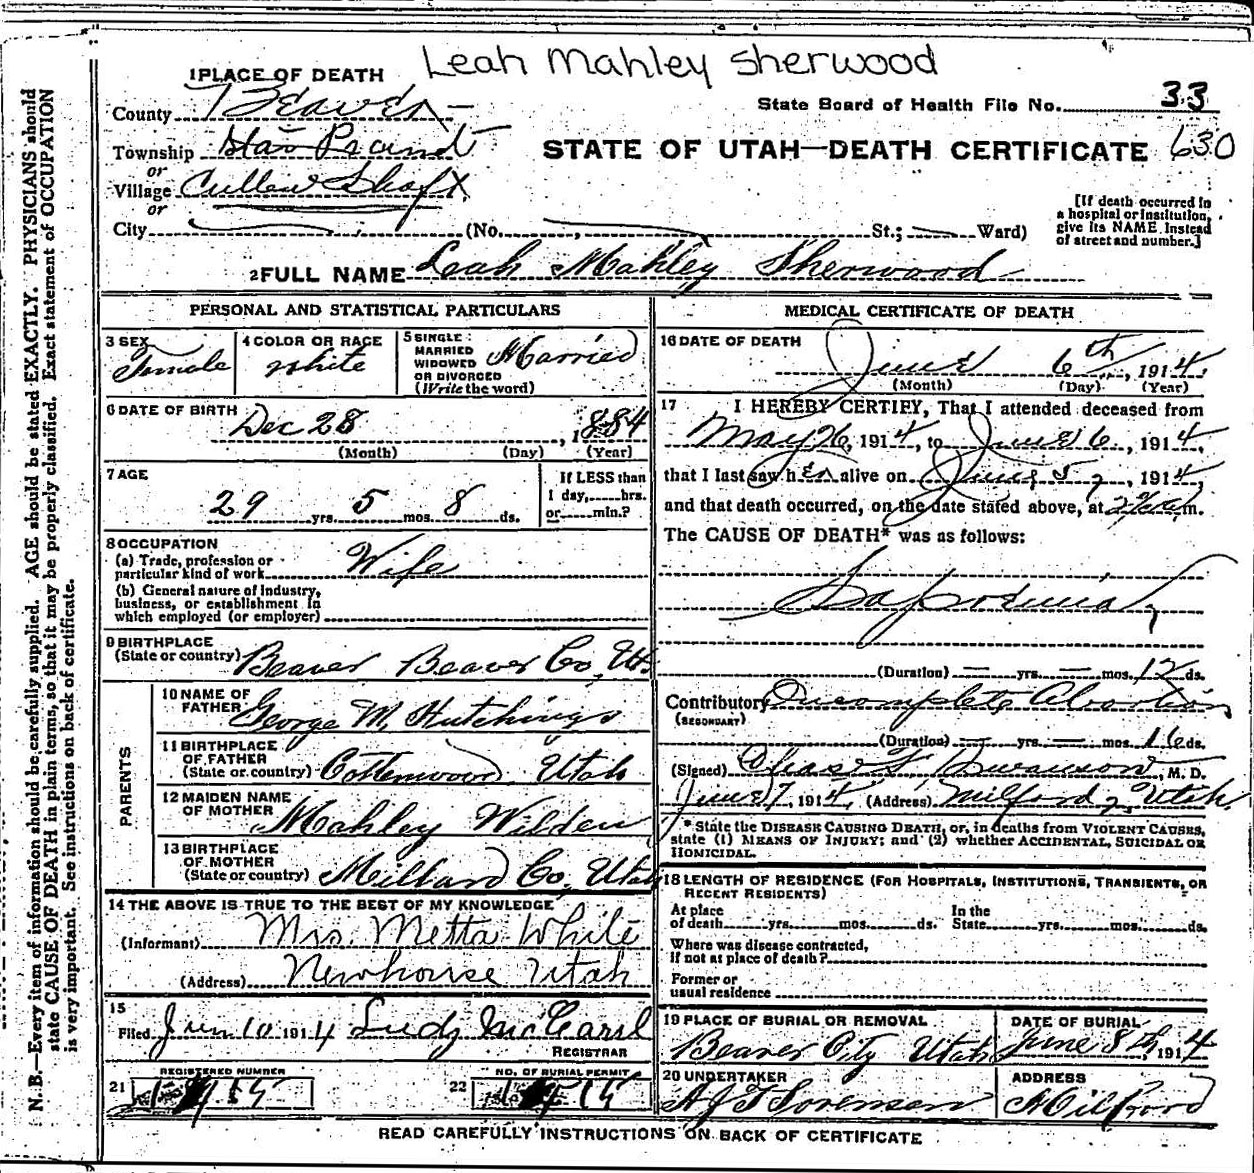 Leah Mahley Sherwood
1 PLACE OF DEATH
County Beaver
State Board of Health File No. 33
Township Star Precinct
STATE OF UTAH—DEATH CERTIFICATE 630
or
Village Cullen Shaft
or
City (No. St.; Ward)
[If death occurred in
a hospital or institution,
give its NAME instead
of street and number.]
2 FULL NAME Leah Mahley Sherwood
PERSONAL AND STATISTICAL PARTICULARS
3 SEX
Female
4 COLOR OR RACE
white
5 SINGLE
MARRIED
WIDOWED
OR DIVORCED
(Write the word)
Married
6 DATE OF BIRTH
Dec 28, 1884
(Month) (Day) (Year)
7 AGE
29 yrs. 5 mos. 8 ds.
If LESS than
1 day, hrs.
or min.?
8 OCCUPATION
(a) Trade, profession or
particular kind of work Wife
(b) General nature of industry,
business, or establishment in
which employed (or employer)
9 BIRTHPLACE
(State or country) Beaver Beaver Co, Ut.
PARENTS
10 NAME OF
FATHER George M. Hutchings
11 BIRTHPLACE
OF FATHER
(State or country) Cottonwood, Utah
12 MAIDEN NAME
OF MOTHER Mahley Wilden
13 BIRTHPLACE
OF MOTHER
(State or country) Millard Co, Utah
14 THE ABOVE IS TRUE TO THE BEST OF MY KNOWLEDGE
(Informant) Mrs. Metta White
(Address) Newhouse Utah
15
Filed Jun 10 1914
REGISTRAR
REGISTERED NUMBER
21
NO. OF BURIAL PERMIT
22
MEDICAL CERTIFICATE OF DEATH
16 DATE OF DEATH
June 6th, 1914
(Month) (Day) (Year)
17 I HEREBY CERTIFY, That I attended deceased from
May 26, 1914, to June 6, 1914,
that I last saw her alive on June 5, 1914,
and that death occurred, on the date stated above, at m.
The CAUSE OF DEATH* was as follows:
Sapraemia
(Duration) — yrs. — mos. 12 ds.
Contributory Incomplete Abortion
(SECONDARY)
(Duration) — yrs. — mos. 16 ds.
(Signed) Swanson, M. D.
June 7, 1914 (Address) Milford, Utah
* State the DISEASE CAUSING DEATH, or, in deaths from VIOLENT CAUSES,
state (1) MEANS OF INJURY; and (2) whether ACCIDENTAL, SUICIDAL OR
HOMICIDAL.
18 LENGTH OF RESIDENCE (FOR HOSPITALS, INSTITUTIONS, TRANSIENTS, OR
RECENT RESIDENTS)
At place
of death yrs. mos. ds.
In the
State yrs. mos. ds.
Where was disease contracted,
if not at place of death?
Former or
usual residence
19 PLACE OF BURIAL OR REMOVAL
Beaver City Utah
DATE OF BURIAL
June 8th, 1914
20 UNDERTAKER
Sorensen
ADDRESS
Milford
READ CAREFULLY INSTRUCTIONS ON BACK OF CERTIFICATE
N. B.—Every item of information should be carefully supplied. AGE should be stated EXACTLY. PHYSICIANS should
state CAUSE OF DEATH in plain terms, so that it may be properly classified. Exact statement of OCCUPATION
is very important. See instructions on back of certificate.